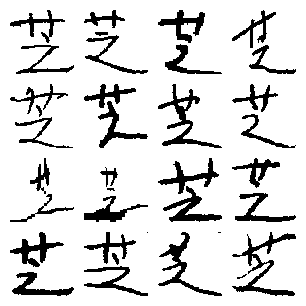 芝芝芝芝
芝芝芝芝
芝芝芝芝
芝芝芝芝